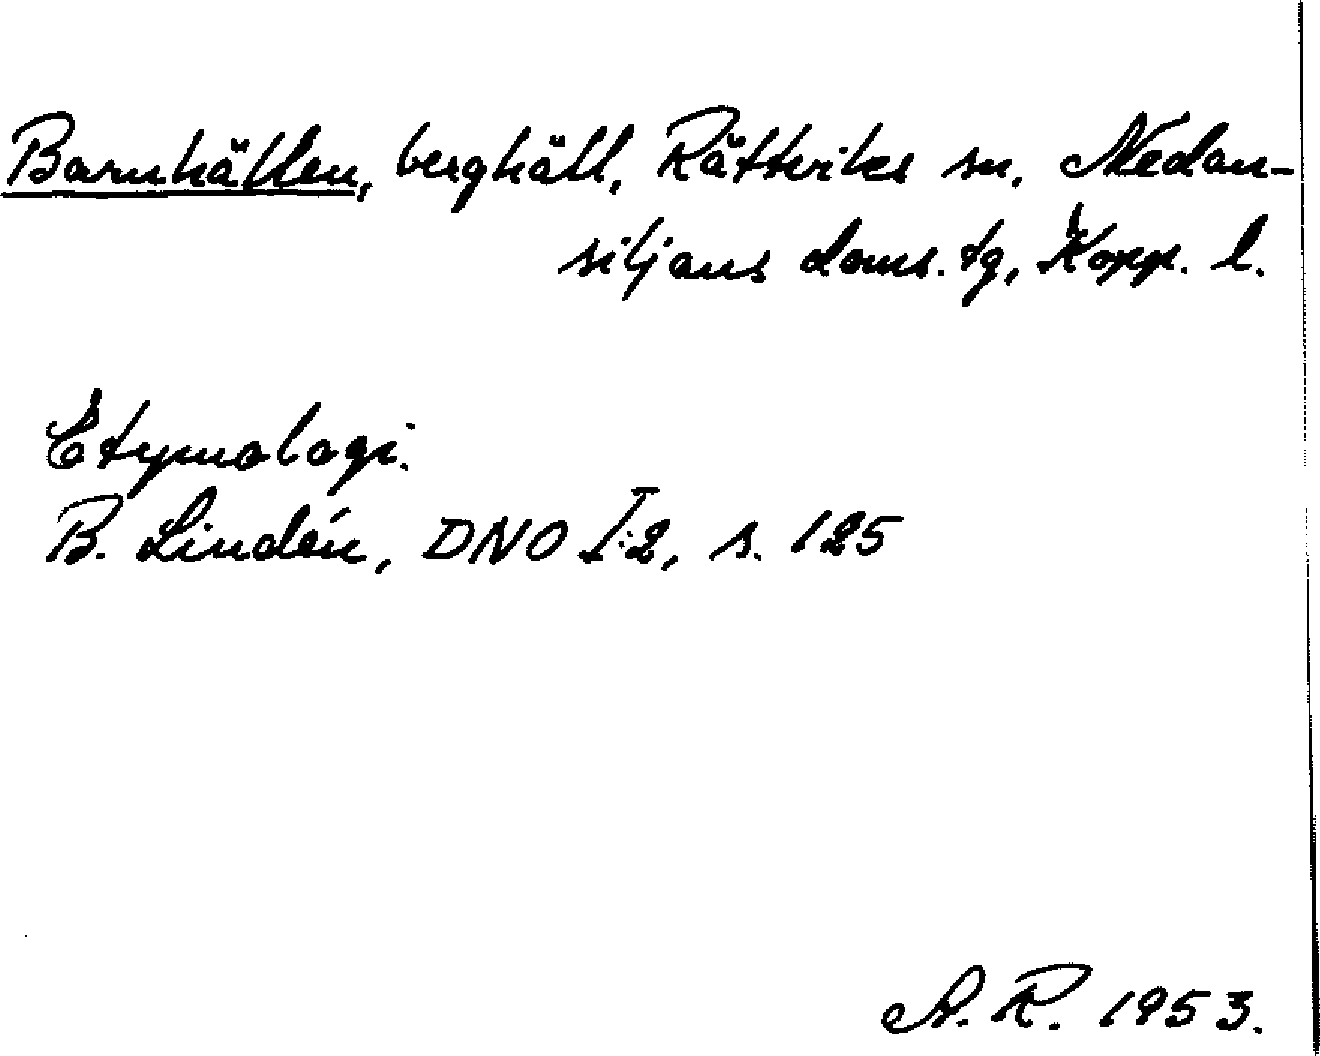 Barnhällen, berghäll, Rättviks sn, Nedan-
siljans doms. tg, Kopp. l.
Etymologi.
B. Lindén, DNO I:2, s. 125
A. R. 1953.